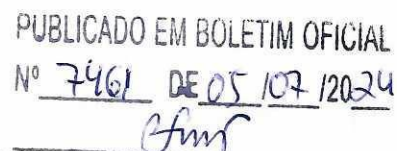 PUBLICADO EM BOLETIM OFICIAL
Nº 7461 DE 05 /07 /2024